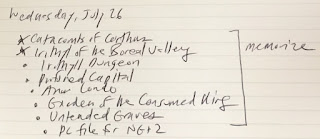 Wednesday, July 26
* Catacombs of Carthus
* Irithyll of the Boreal Valley
• Irithyll Dungeon
• Profaned Capital
• Anor Londo
• Garden of the Consumed King
• Untended Graves
• PC file for NG+2
memorize